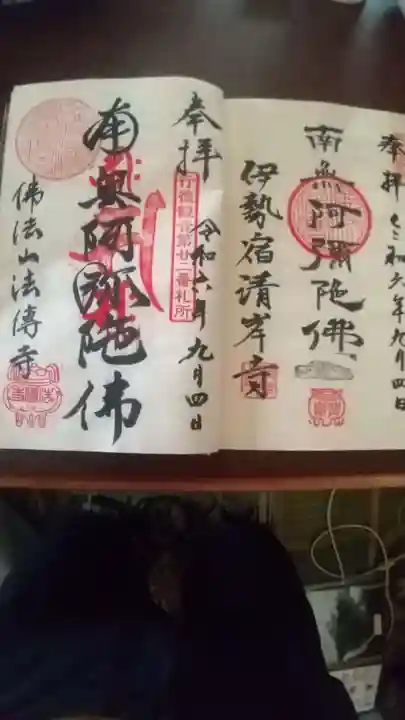 奉拝 令和六年九月四日
南無阿彌陀佛
伊勢宿清岸寺
奉拝 令和六年九月四日
行徳観音第廿二番札所
南無阿弥陀佛
佛法山法傳寺